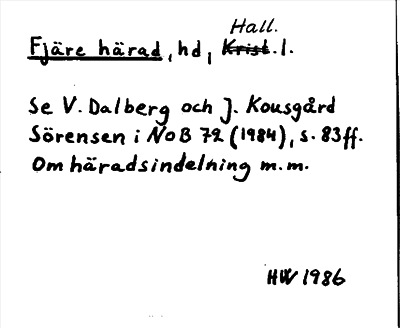 Hall.
Fjäre härad, hd, Krist. l.
Se V. Dalberg och J. Kousgård
Sörensen i NoB 72 (1984), s. 83ff.
Om häradsindelning m.m.
HW 1986